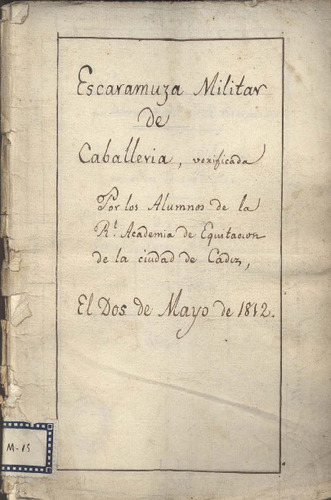 Escaramuza Militar
de
Caballeria, verificada
Por los Alumnos de la
Rl. Academia de Equitacion
de la ciudad de Cadiz,
El Dos de Mayo de 1812.
M-15